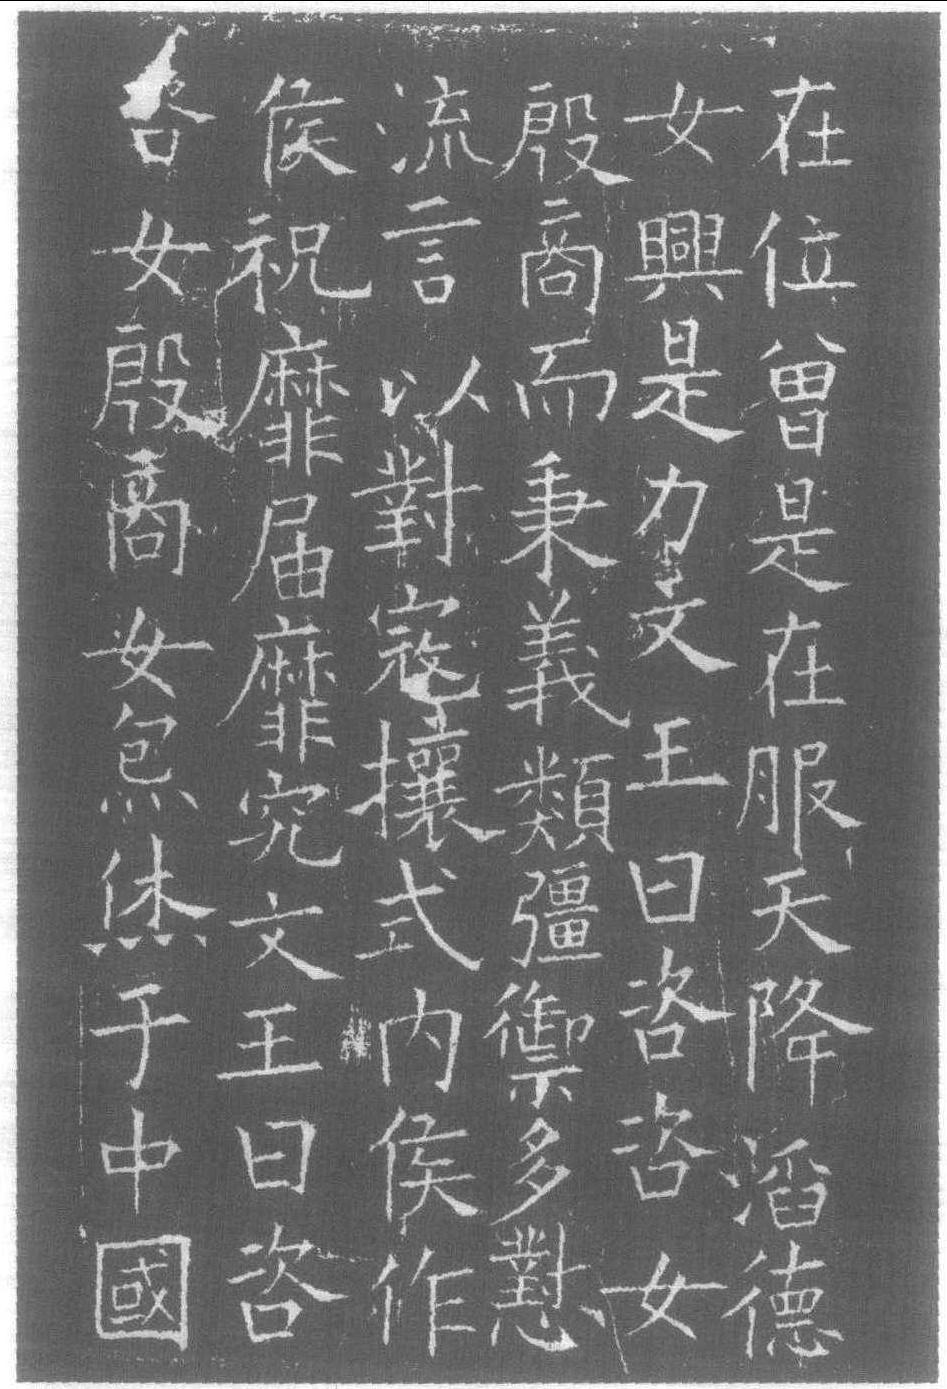 在位曾是在服天降滔德
女興是力文王曰咨咨女
殷商而秉義類彊禦多懟
流言以對寇攘式内侯作
侯祝靡届靡究文王曰咨
咨女殷商女炰烋于中國